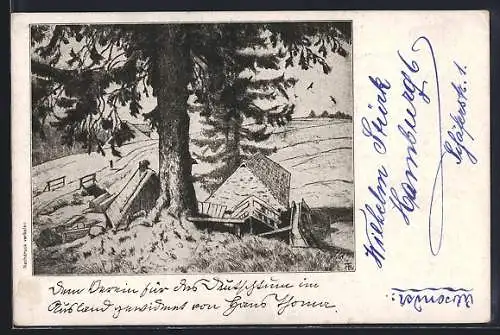 Nachdruck verboten
Dem Verein für das Deutschtum im
Ausland gewidmet von Hans Thoma.
Wilhelm Stürk
Hamburg 6
1.